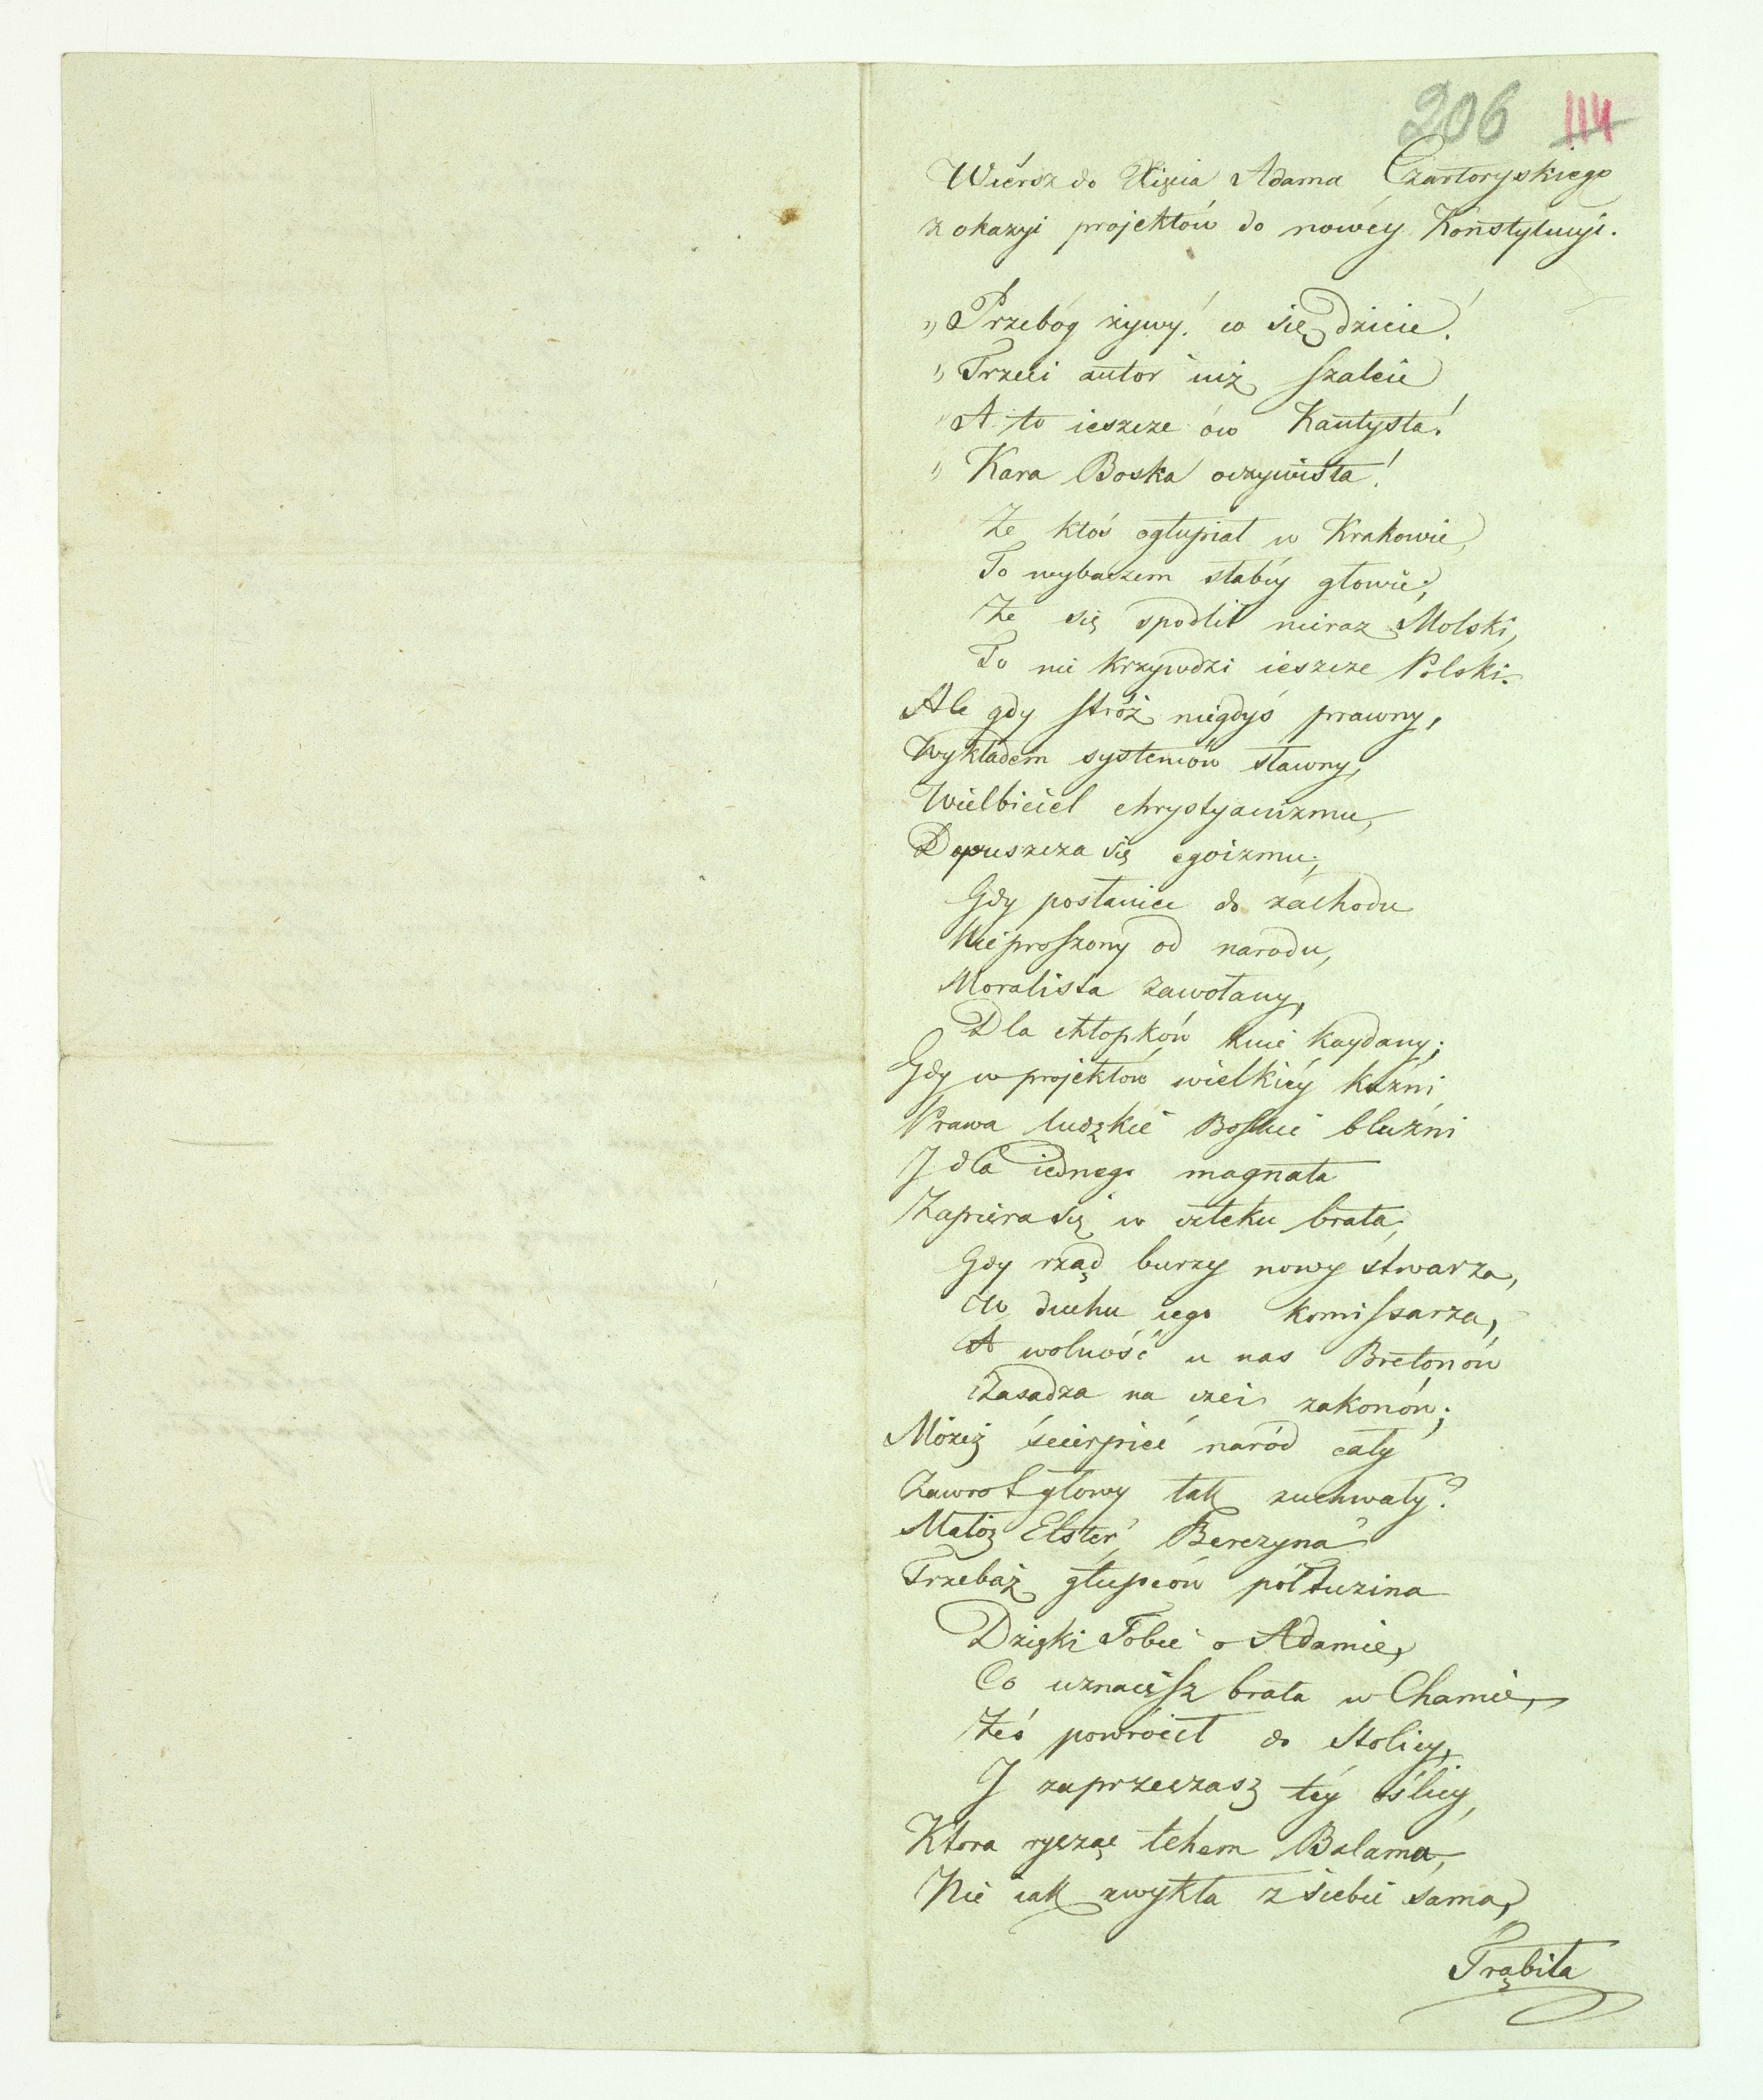 206 114
Wiérsz do Xięcia Adama Czartoryskiego
z okazyi projektów do nowéy Konstytucyi.
„Przebóg żywy! co się dzieie!
„Trzeci autor iuż szaleie
„A to ieszcze ów Kantysta!
„Kara Boska oczywista!
Że ktoś ogłupiał w Krakowie,
To wybaczem słabéy głowie;
Że się spodlił nieraz Molski,
To nie krzywdzi ieszcze Polski.
Ale gdy stróż niegdyś prawny,
Wykładem systemów sławny,
Wielbiciel chrystyanizmu,
Dopuszcza się egoizmu;
Gdy posłaniec do zachodu
Nieproszony od narodu,
Moralista zawołany,
Dla chłopków kuie kaydany;
Gdy w projektów wielkiéy kuźni
Prawa ludzkie Boskie bluźni
I dla iednego magnata
Zapiera się w człeku brata;
Gdy rząd burzy nowy stwarza,
W duchu iego komissarza,
A wolność u nas Bretonów
Zasadza na czci zakonów;
Możeż ścierpieć naród cały
Zawrot głowy tak zuchwały?
Małoż Elster, Berezyna
Trzebaż głupców pół tuzina
Dzięki Tobie o Adamie,
Co uznaiesz brata w Chamie,
Żeś powrócił do Stolicy,
I zaprzeczasz téy oślicy,
Ktora rycząc tchem Balama,
Nie iak zwykła z siebie sama,
Trąbiła